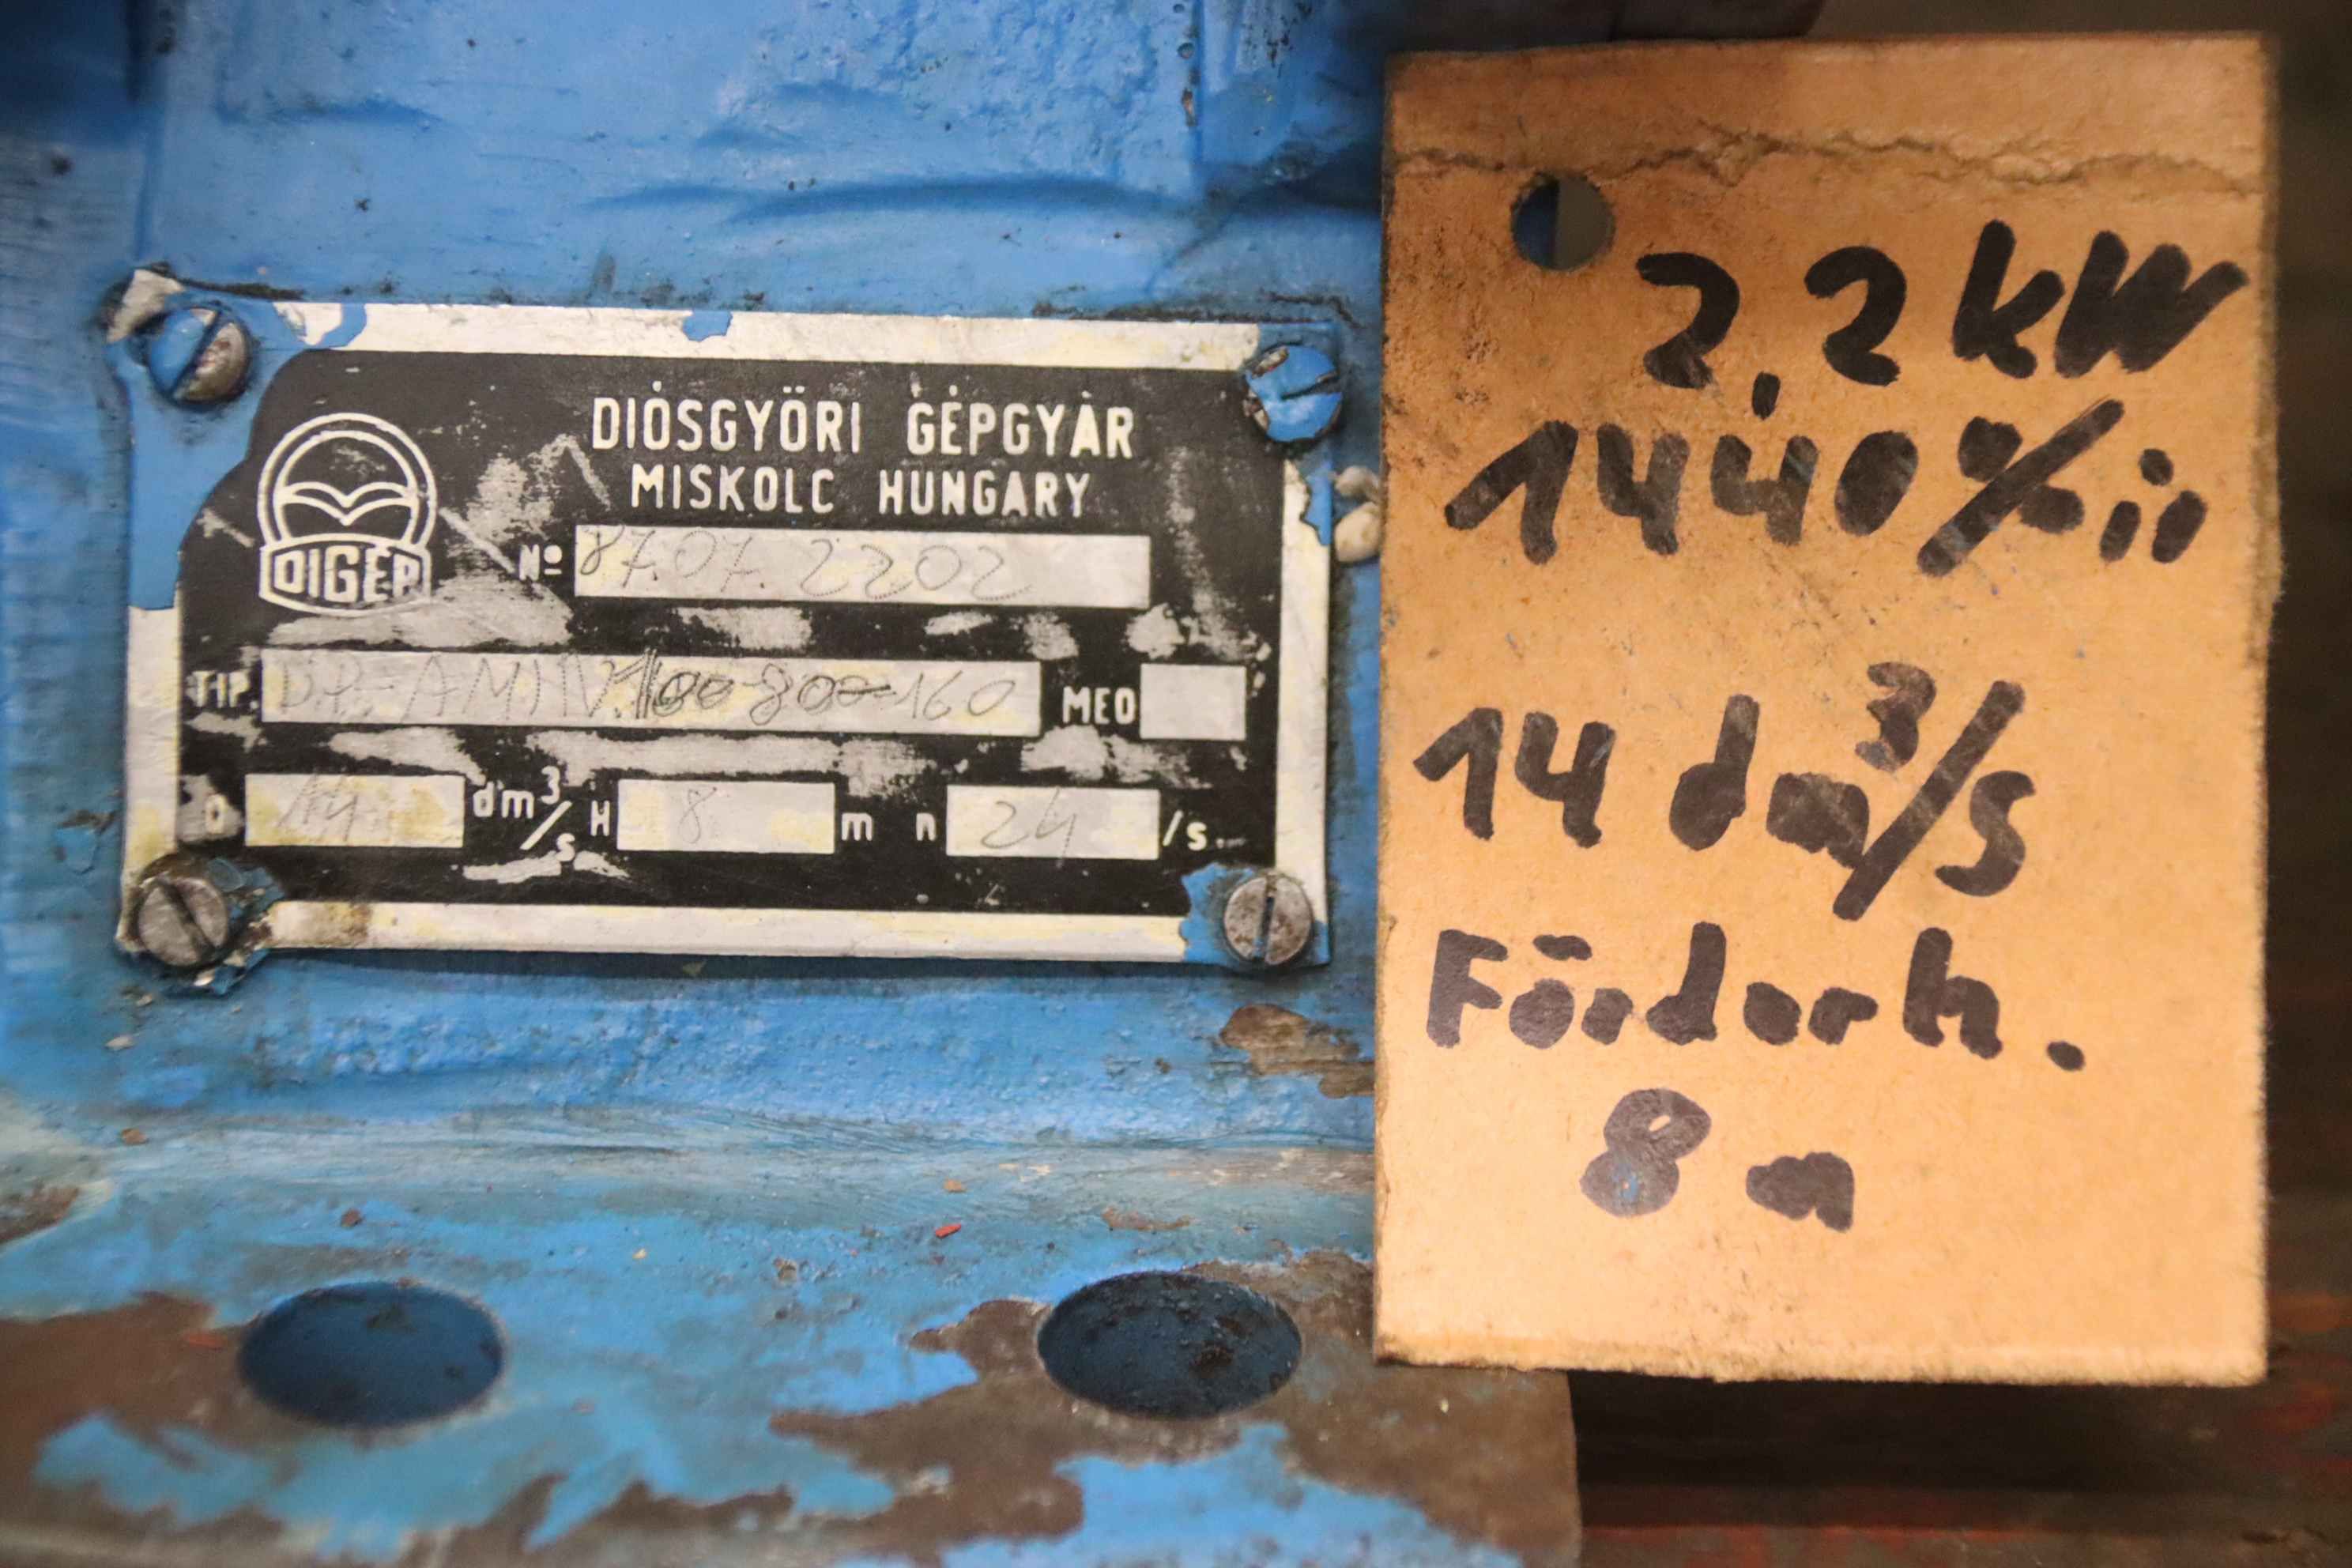 DIÓSGYŐRI GÉPGYÁR
MISKOLC HUNGARY
DIGÉP
Nº 87.07.2202
TIP. 160 MEO
Q 14 dm³/s H 8 m n 24 /s
2,2 kW
1440 %
14 dm³/s
Förderh.
8 m